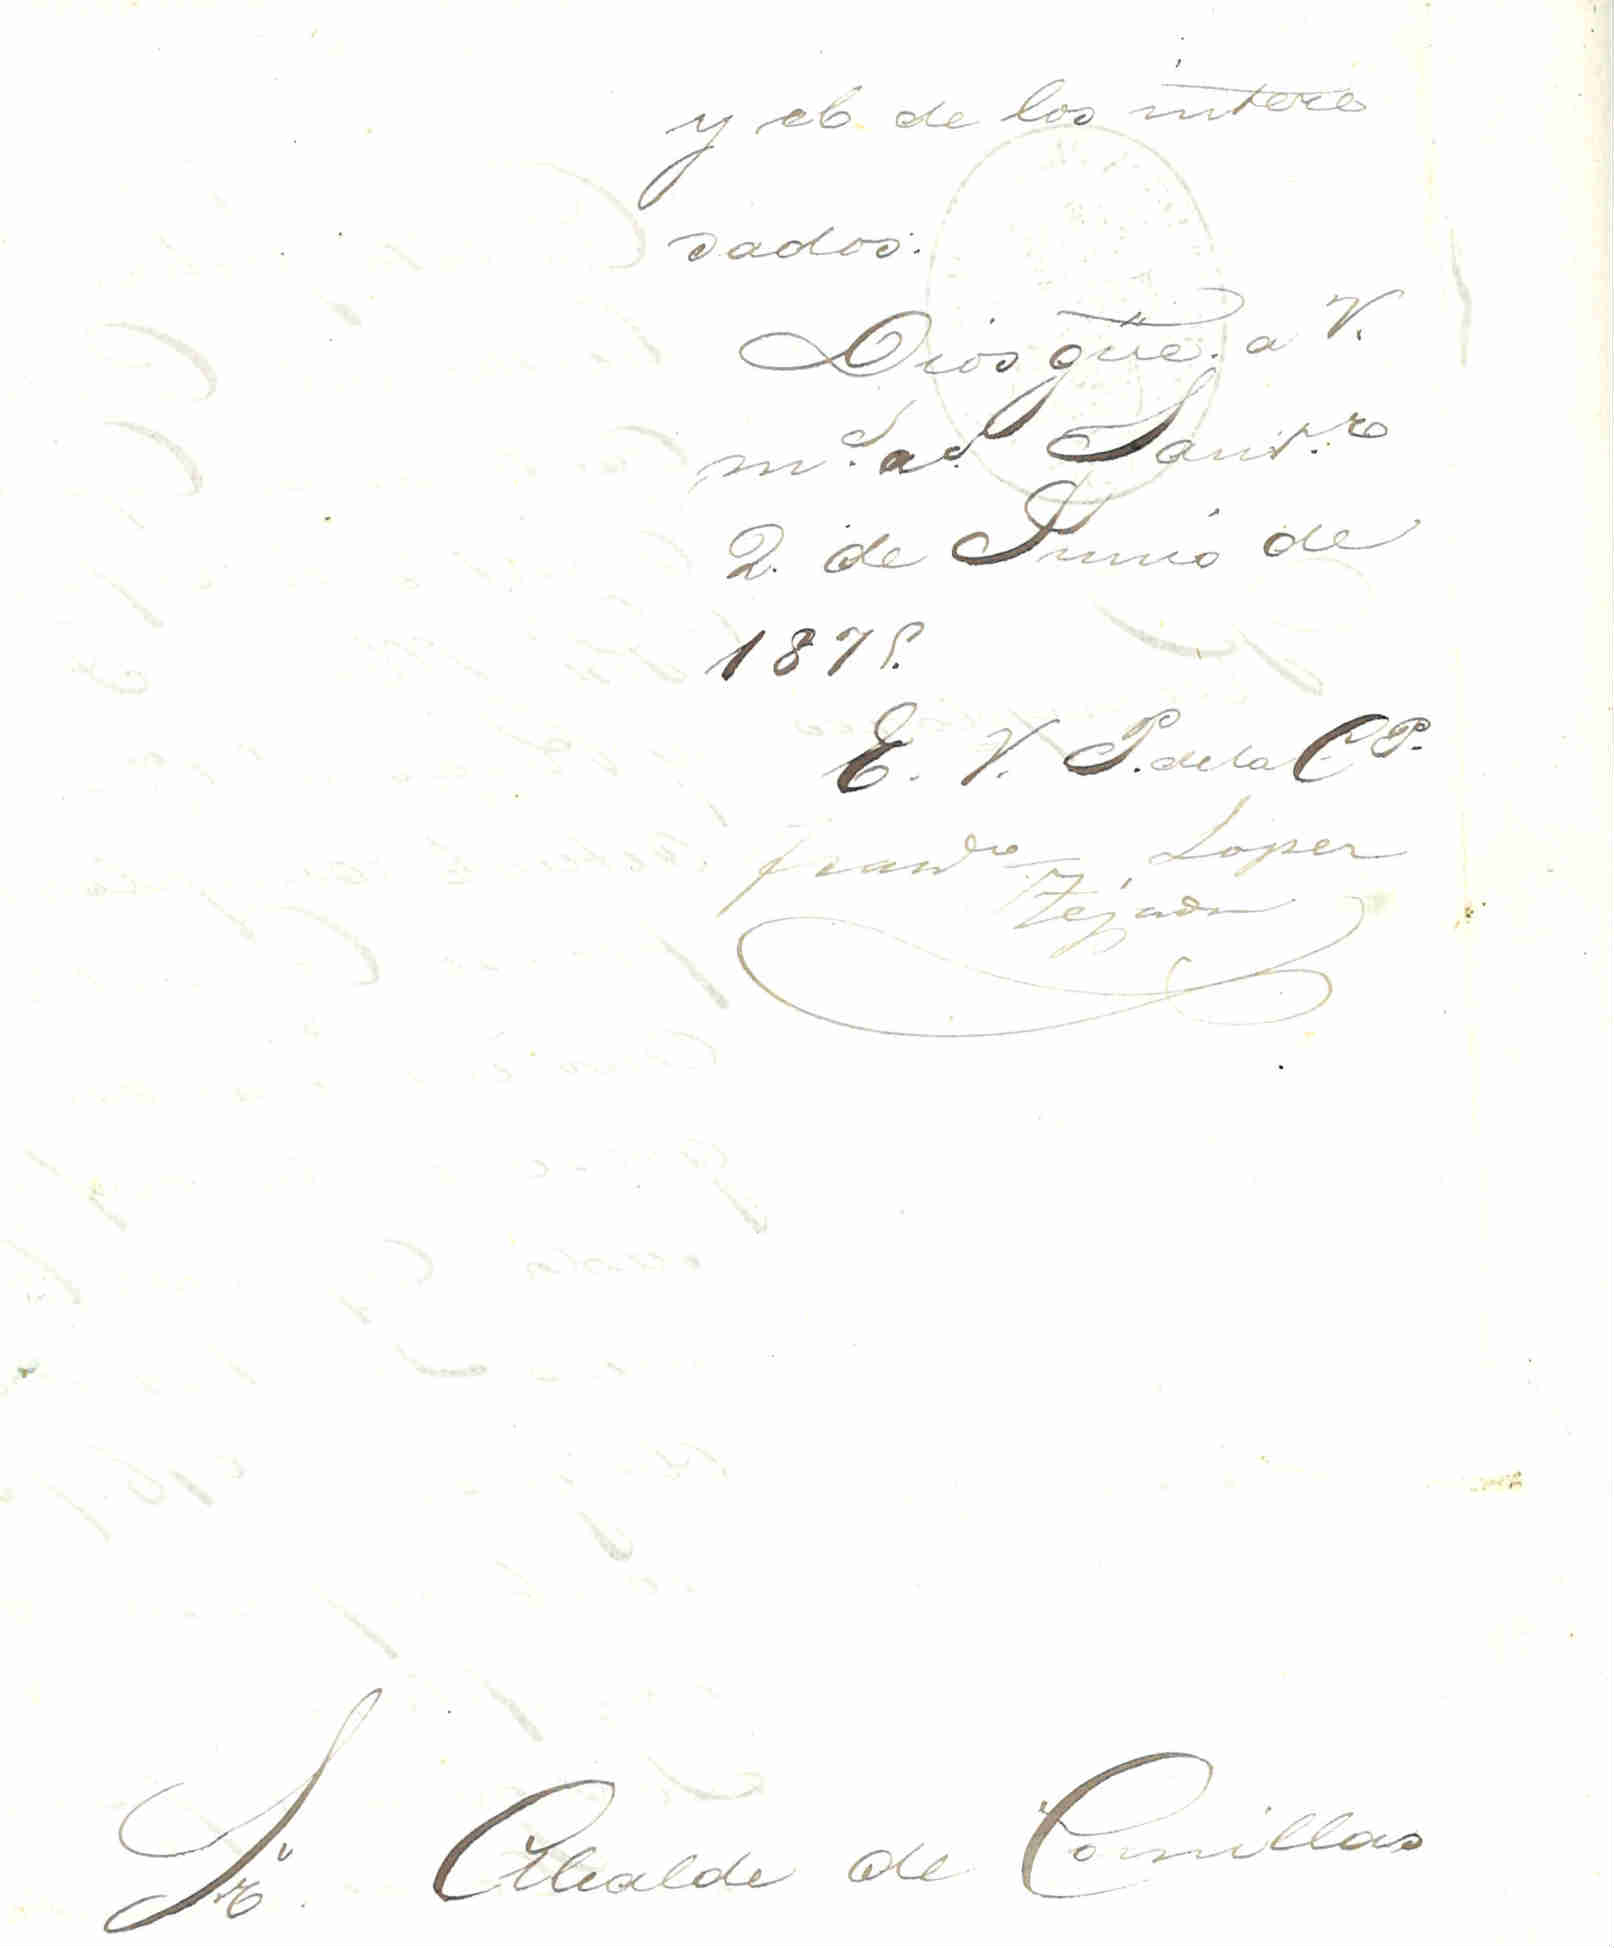 y el de los intere
sados.
Dios gue. a V.
m.s a.s Sant.r
2. de Junio de
187
E. V. P. de la C. P.
Franco Lopez
Tejada
Sr. Alcalde de Comillas